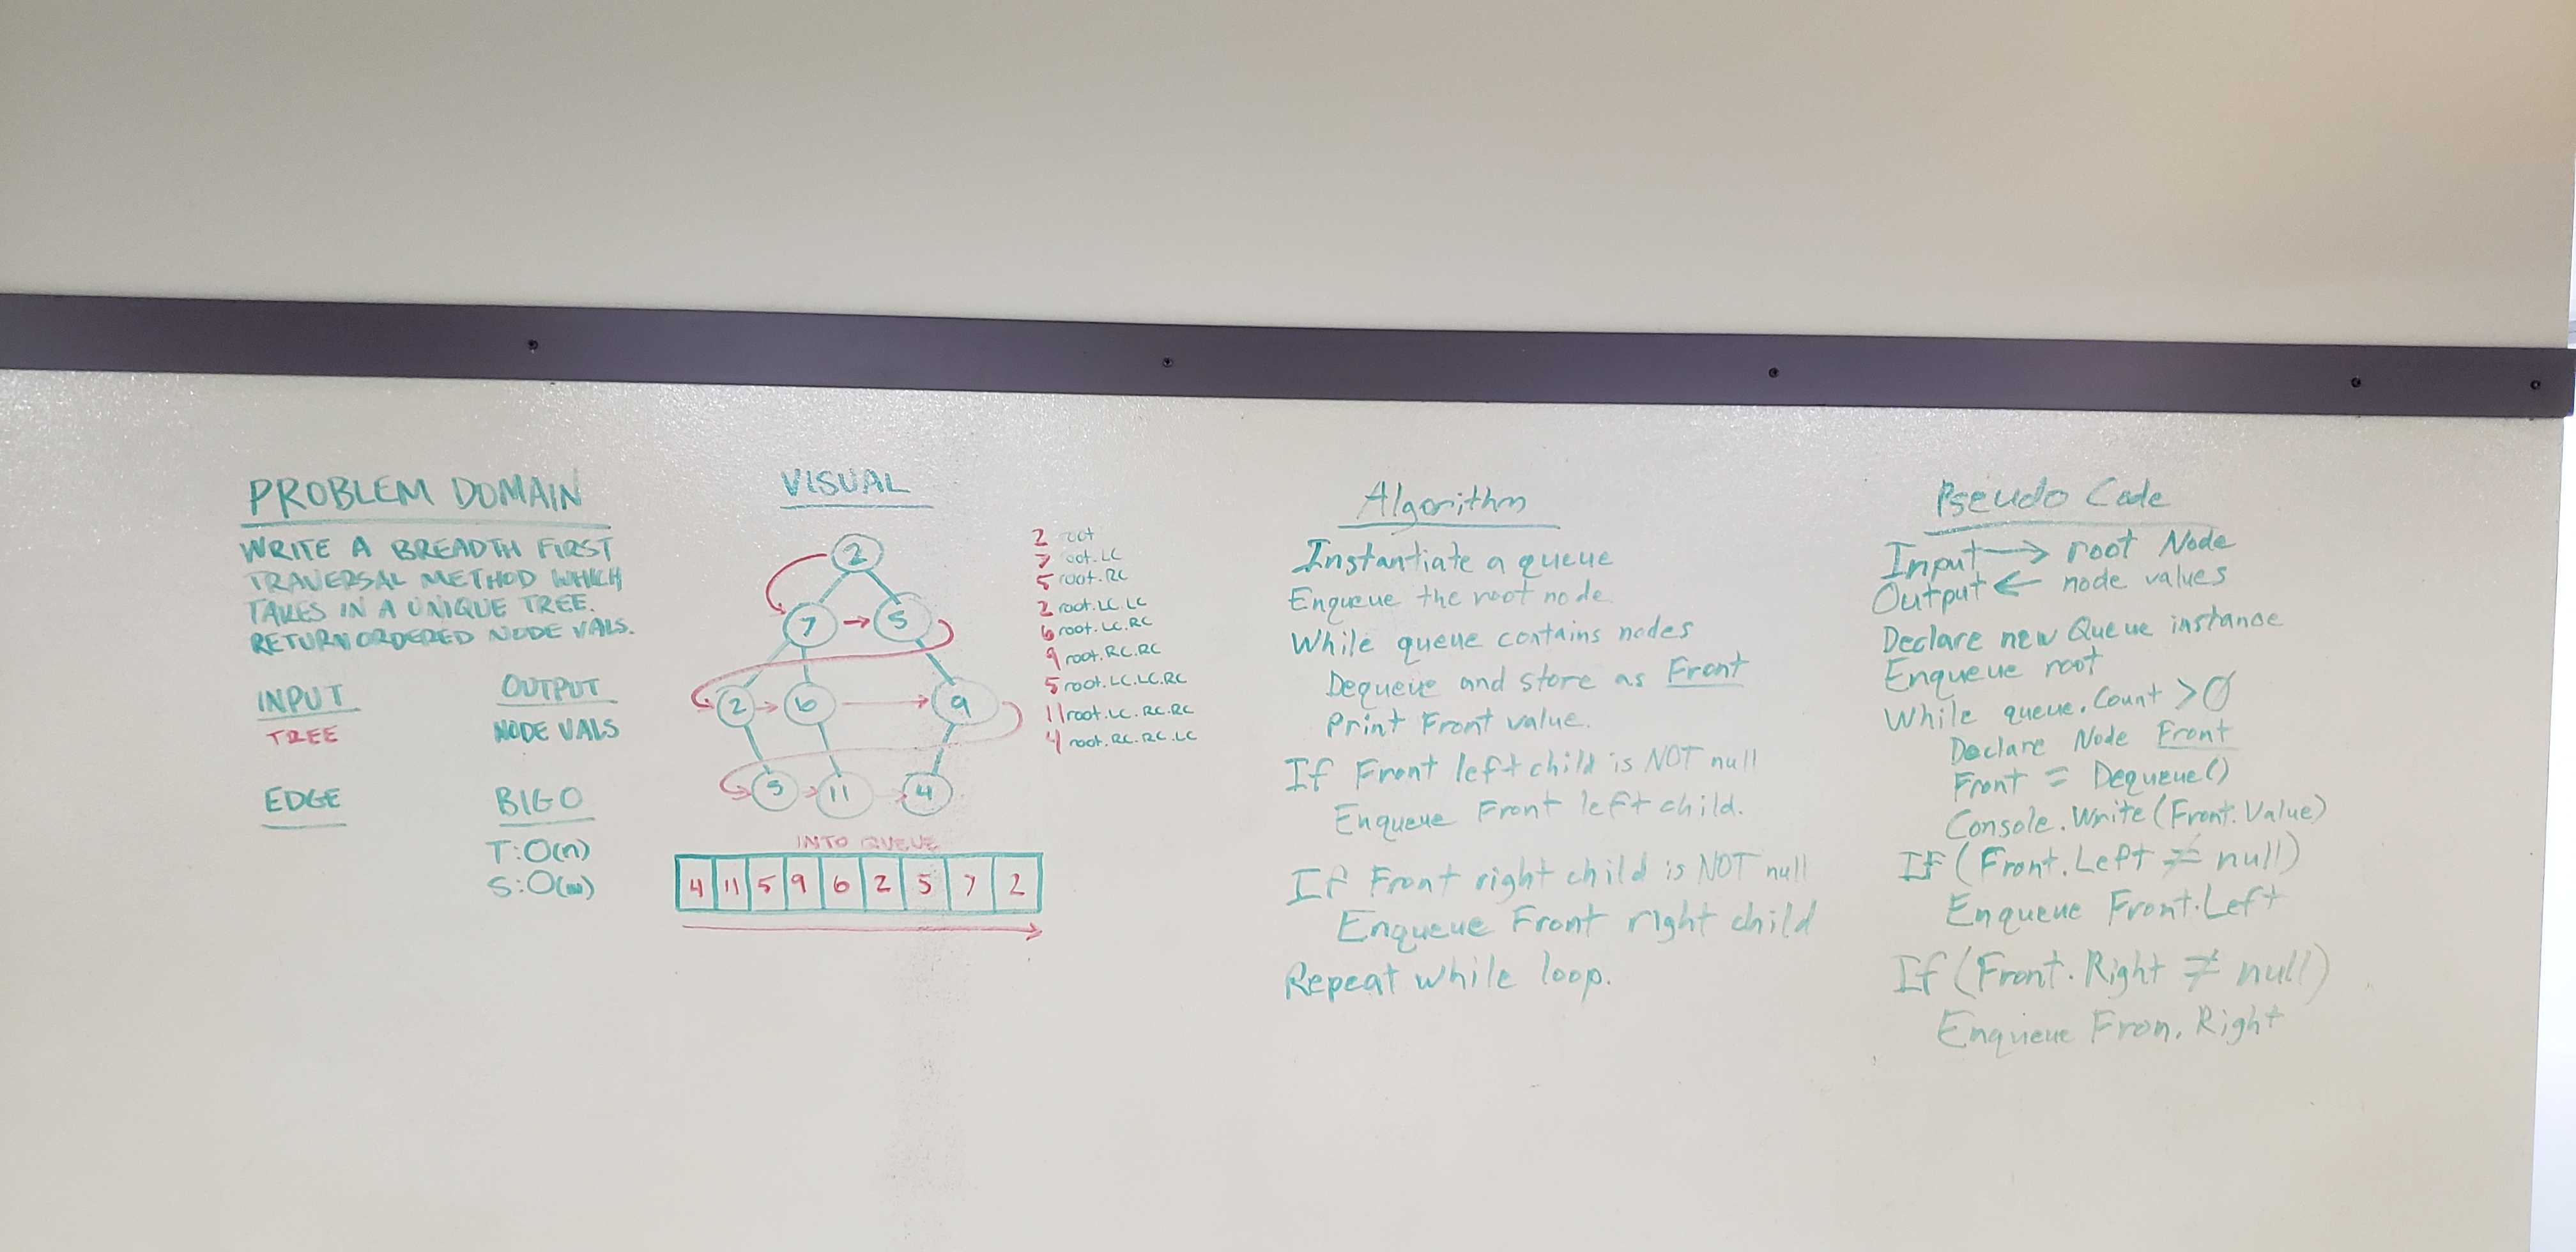 PROBLEM DOMAIN
WRITE A BREADTH FIRST
TRAVERSAL METHOD WHICH
TAKES IN A UNIQUE TREE.
RETURN ORDERED NODE VALS.
INPUT
TREE
OUTPUT
NODE VALS
EDGE
BIG O
T:O(n)
S:O(w)
VISUAL
2
7 → 5
2 → 6 → 9
5 → 11 → 4
INTO QUEUE
4 11 5 9 6 2 5 7 2
2 root
7 root.LC
5 root.RC
2 root.LC.LC
6 root.LC.RC
9 root.RC.RC
5 root.LC.LC.RC
11 root.LC.RC.RC
4 root.RC.RC.LC
Algorithm
Instantiate a queue
Enqueue the root node
While queue contains nodes
Dequeue and store as Front
Print Front value.
If Front left child is NOT null
Enqueue Front left child.
If Front right child is NOT null
Enqueue Front right child
Repeat while loop.
Pseudo Code
Input → root Node
Output ← node values
Declare new Queue instance
Enqueue root
While queue.Count > 0
Declare Node Front
Front = Dequeue()
Console.Write(Front.Value)
If (Front.Left ≠ null)
Enqueue Front.Left
If (Front.Right ≠ null)
Enqueue Fron.Right